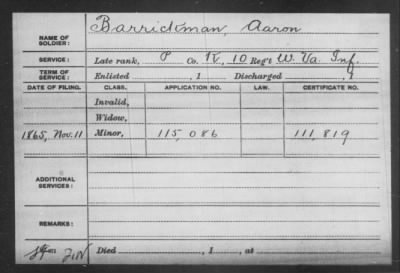 NAME OF SOLDIER: Barrickman, Aaron
SERVICE: Late rank, P Co. K, 10 Reg't W. Va. Inf.
TERM OF SERVICE: Enlisted , 1 Discharged , 1
DATE OF FILING. CLASS. APPLICATION NO. LAW. CERTIFICATE NO.
Invalid,
Widow,
1865, Nov. 11 Minor, 115,086 111,819
ADDITIONAL SERVICES:
REMARKS:
Died , 1 , at